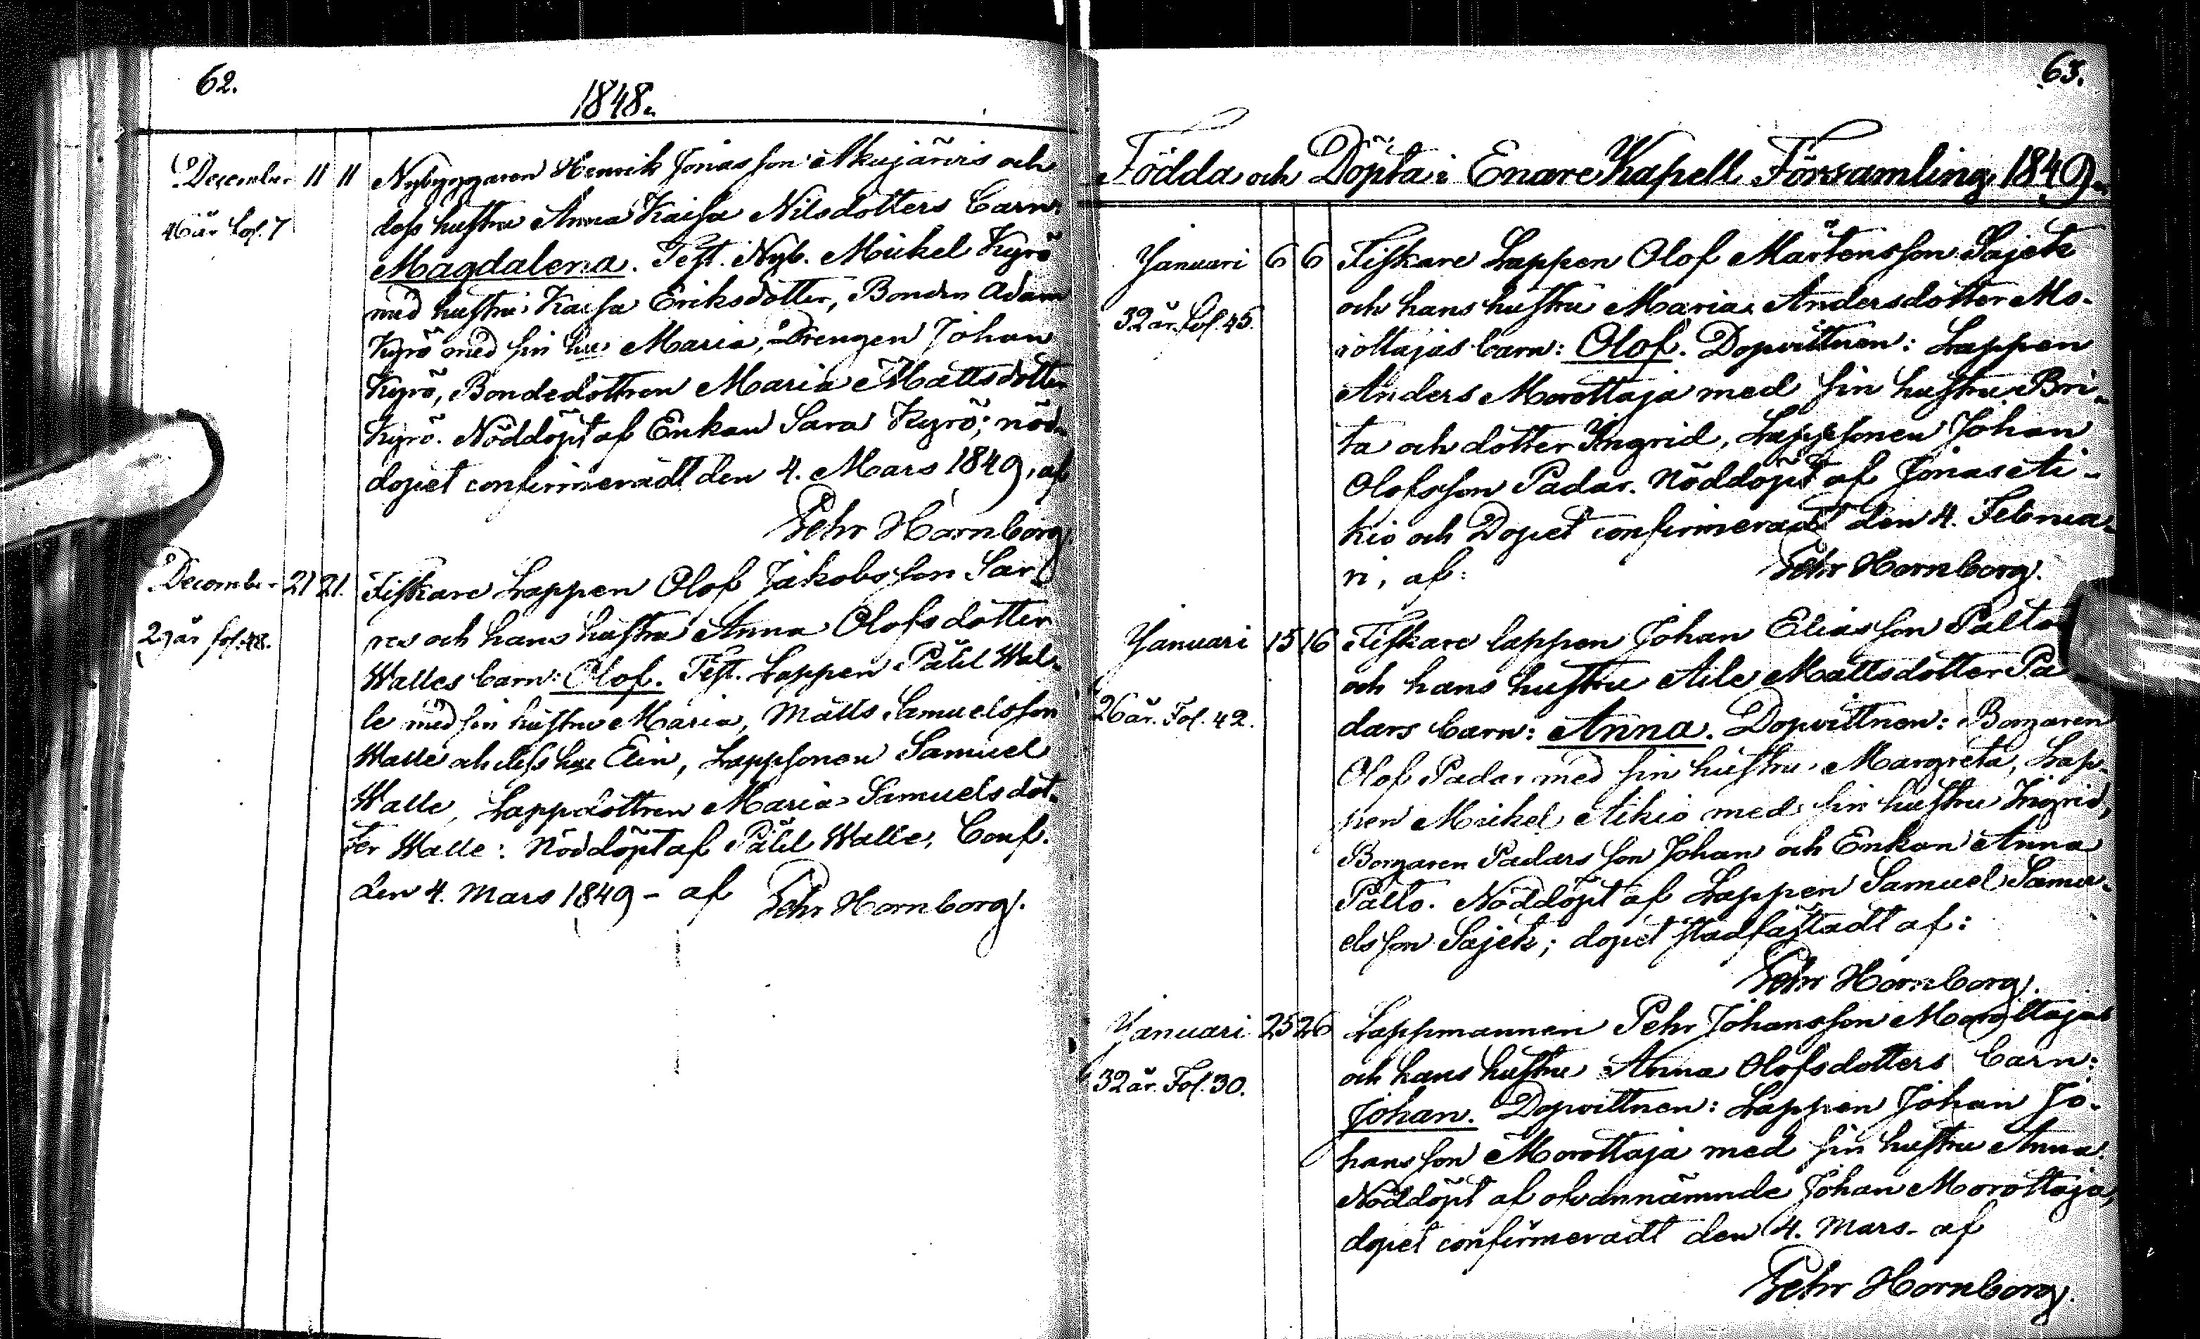 62.
1848.
December 11 11 Nybyggaren Henrik Jonasson Akujärvis och
46 år fol. 7 dess hustru Anna Kaisa Nilsdotters barn:
Magdalena. Test. Nyb. Mickel Kyrö
med hustru Kaisa Eriksdotter, Bonden Adam
Kyrö med sin hu: Maria, Drengen Johan
Kyrö, Bondedottren Maria Mattsdotter
Kyrö. Nöddöpt af Enkan Sara Kyrö; nöd-
dopet confirmeradt den 4. Mars 1849, af
Pehr Hornborg.
December 21 21. Fiskare Lappen Olof Jakobsson Sar-
res och hans hustru Anna Olofsdotter
29 år fol. 48. Walles barn: Olof. Test. Lappen Påhl Wal-
le med sin hustru Maria, Matts Samuelsson
Walle och dess hu Elin, Lappsonen Samuel
Walle, Lappdottren Maria Samuelsdot-
ter Walle: Nöddöpt af Påhl Walle, Conf.
den 4. Mars 1849 - af Pehr Hornborg.
63.
Födda och Döpta i Enare Kapell Församling 1849.
Januari 6 6 Fiskare Lappen Olof Mårtensson Sajek
32 år. fol. 45. och hans hustru Maria Andersdotter Mo-
rottajas barn: Olof. Dopvittnen: Lappen
Anders Morottaja med sin hustru Bri-
ta och dotter Yngrid, Lappsonen Johan
Olofsson Padar. Nöddöpt af Jonas Ai-
kio och Dopet confirmeradt den 4. Februa-
ri, af: Pehr Hornborg.
Januari 15 16 Fiskare lappen Johan Eliasson Palto
26 år. Fol. 42. och hans hustru Aile Mattsdotter Pa-
dars barn: Anna. Dopvittnen: Borgaren
Olof Padar med sin hustru Margreta, Lap-
pen Mickel Aikio med sin hustru Ingrid,
Borgaren Padars son Johan och Enkan Anna
Palto. Nöddöpt af Lappen Samuel Samu-
elsson Sajek; dopet stadfästadt af:
Pehr Hornborg.
Januari 25 26 Lappmannen Pehr Johansson Morottajas
32 år. Fol. 30. och hans hustru Anna Olofsdotters barn:
Johan. Dopvittnen: Lappen Johan Jo-
hansson Morottaja med sin hustru Anna.
Nöddöpt af ofvannämnde Johan Morottaja,
dopet confirmeradt den 4. Mars - af
Pehr Hornborg.